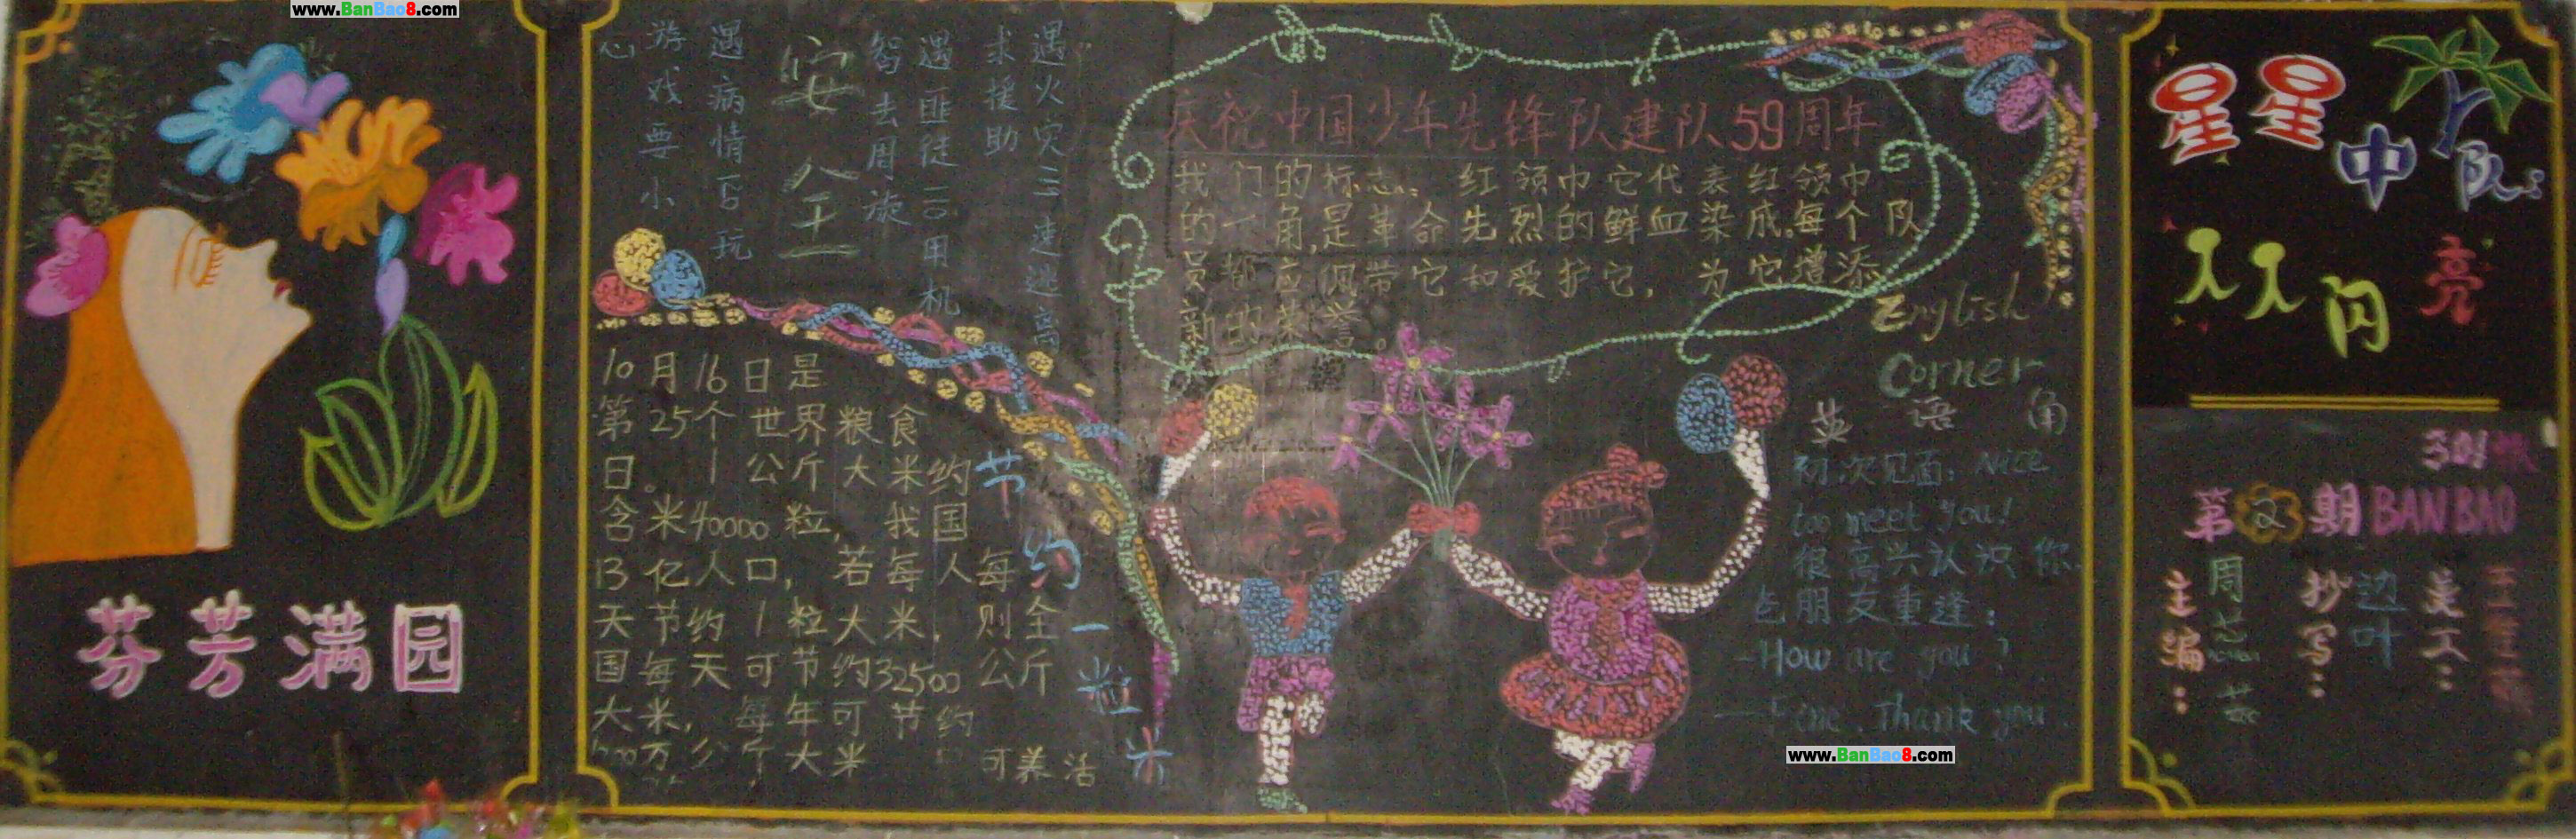 www.BanBao8.com
芬芳满园
安全
遇火灾三速逃高
求援助
遇匪徒三用机
智去周旋
遇病情后玩
游戏要小
心
庆祝中国少年先锋队建队59周年
我们的标志：红领巾它代表红领巾
的一角,是革命先烈的鲜血染成.每个队
员都应佩带它和爱护它,为它增添
新的荣誉。
节约一粒米
10月16日是
第25个世界粮食
日。1公斤大米约
含米40000粒,我国
13亿人口,若每人每
天节约1粒大米,则全
国每天可节约32500公斤
大米,每年可节约
万公斤大米 可养活
English
Corner
英语角
初次见面: Nice
too meet you!
很高兴认识你.
朋友重逢:
-How are you?
—Fine. Thank you.
www.BanBao8.com
星星中队
人人闪亮
第2期BANBAO
主编: 周
抄写: 边叶
美工: 王